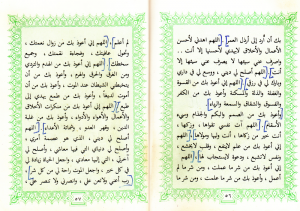 بك أن أرد إلى أرذل العمر اللهم اهدني لأحسن
الأعمال والأخلاق لا يهدي لأحسنها إلا أنت
واصرف عني سيئها لا يصرف عني سيئها إلا
أنت اللهم أصلح لي ديني، ووسع لي في داري
وبارك لي في رزقي اللهم إني أعوذ بك من القسوة
والغفلة والذلة والمسكنة وأعوذ بك من الكفر
والفسوق والشقاق والسمعة والرياء
وأعوذ بك من الصمم والبكم والجذام وسيء
الأسقام اللهم آت نفسي تقواها، وزكها
أنت خير من زكاها، أنت وليها ومولاها اللهم
إني أعوذ بك من علم لا ينفع، وقلب لا يخشع،
ونفس لا تشبع، ودعوة لا يستجاب لها اللهم
إني أعوذ بك من شر ما عملت، ومن شر ما لم
أعمل، وأعوذ بك من شر ما علمت، ومن شر ما
٥٦
لم أعلم اللهم إني أعوذ بك من زوال نعمتك،
وتحول عافيتك، وفجاءة نقمتك، وجميع
سخطك اللهم إني أعوذ بك من الهدم والتردي
ومن الغرق والحرق والهرم، وأعوذ بك من أن
يتخبطني الشيطان عند الموت، وأعوذ بك من أن
أموت لديغا، وأعوذ بك من طمع يهدي إلى
طبع اللهم إني أعوذ بك من منكرات الأخلاق
والأعمال والأهواء والأدواء، وأعوذ بك من غلبة
الدين، وقهر العدو، وشماتة الأعداء اللهم
أصلح لي ديني الذي هو عصمة أمري،
وأصلح لي دنياي التي فيها معاشي، وأصلح لي
آخرتي التي إليها معادي، واجعل الحياة زيادة لي
في كل خير، واجعل الموت راحة لي من كل شر
رب أعني ولا تعن علي، وانصرني ولا تنصر علي
٥٧